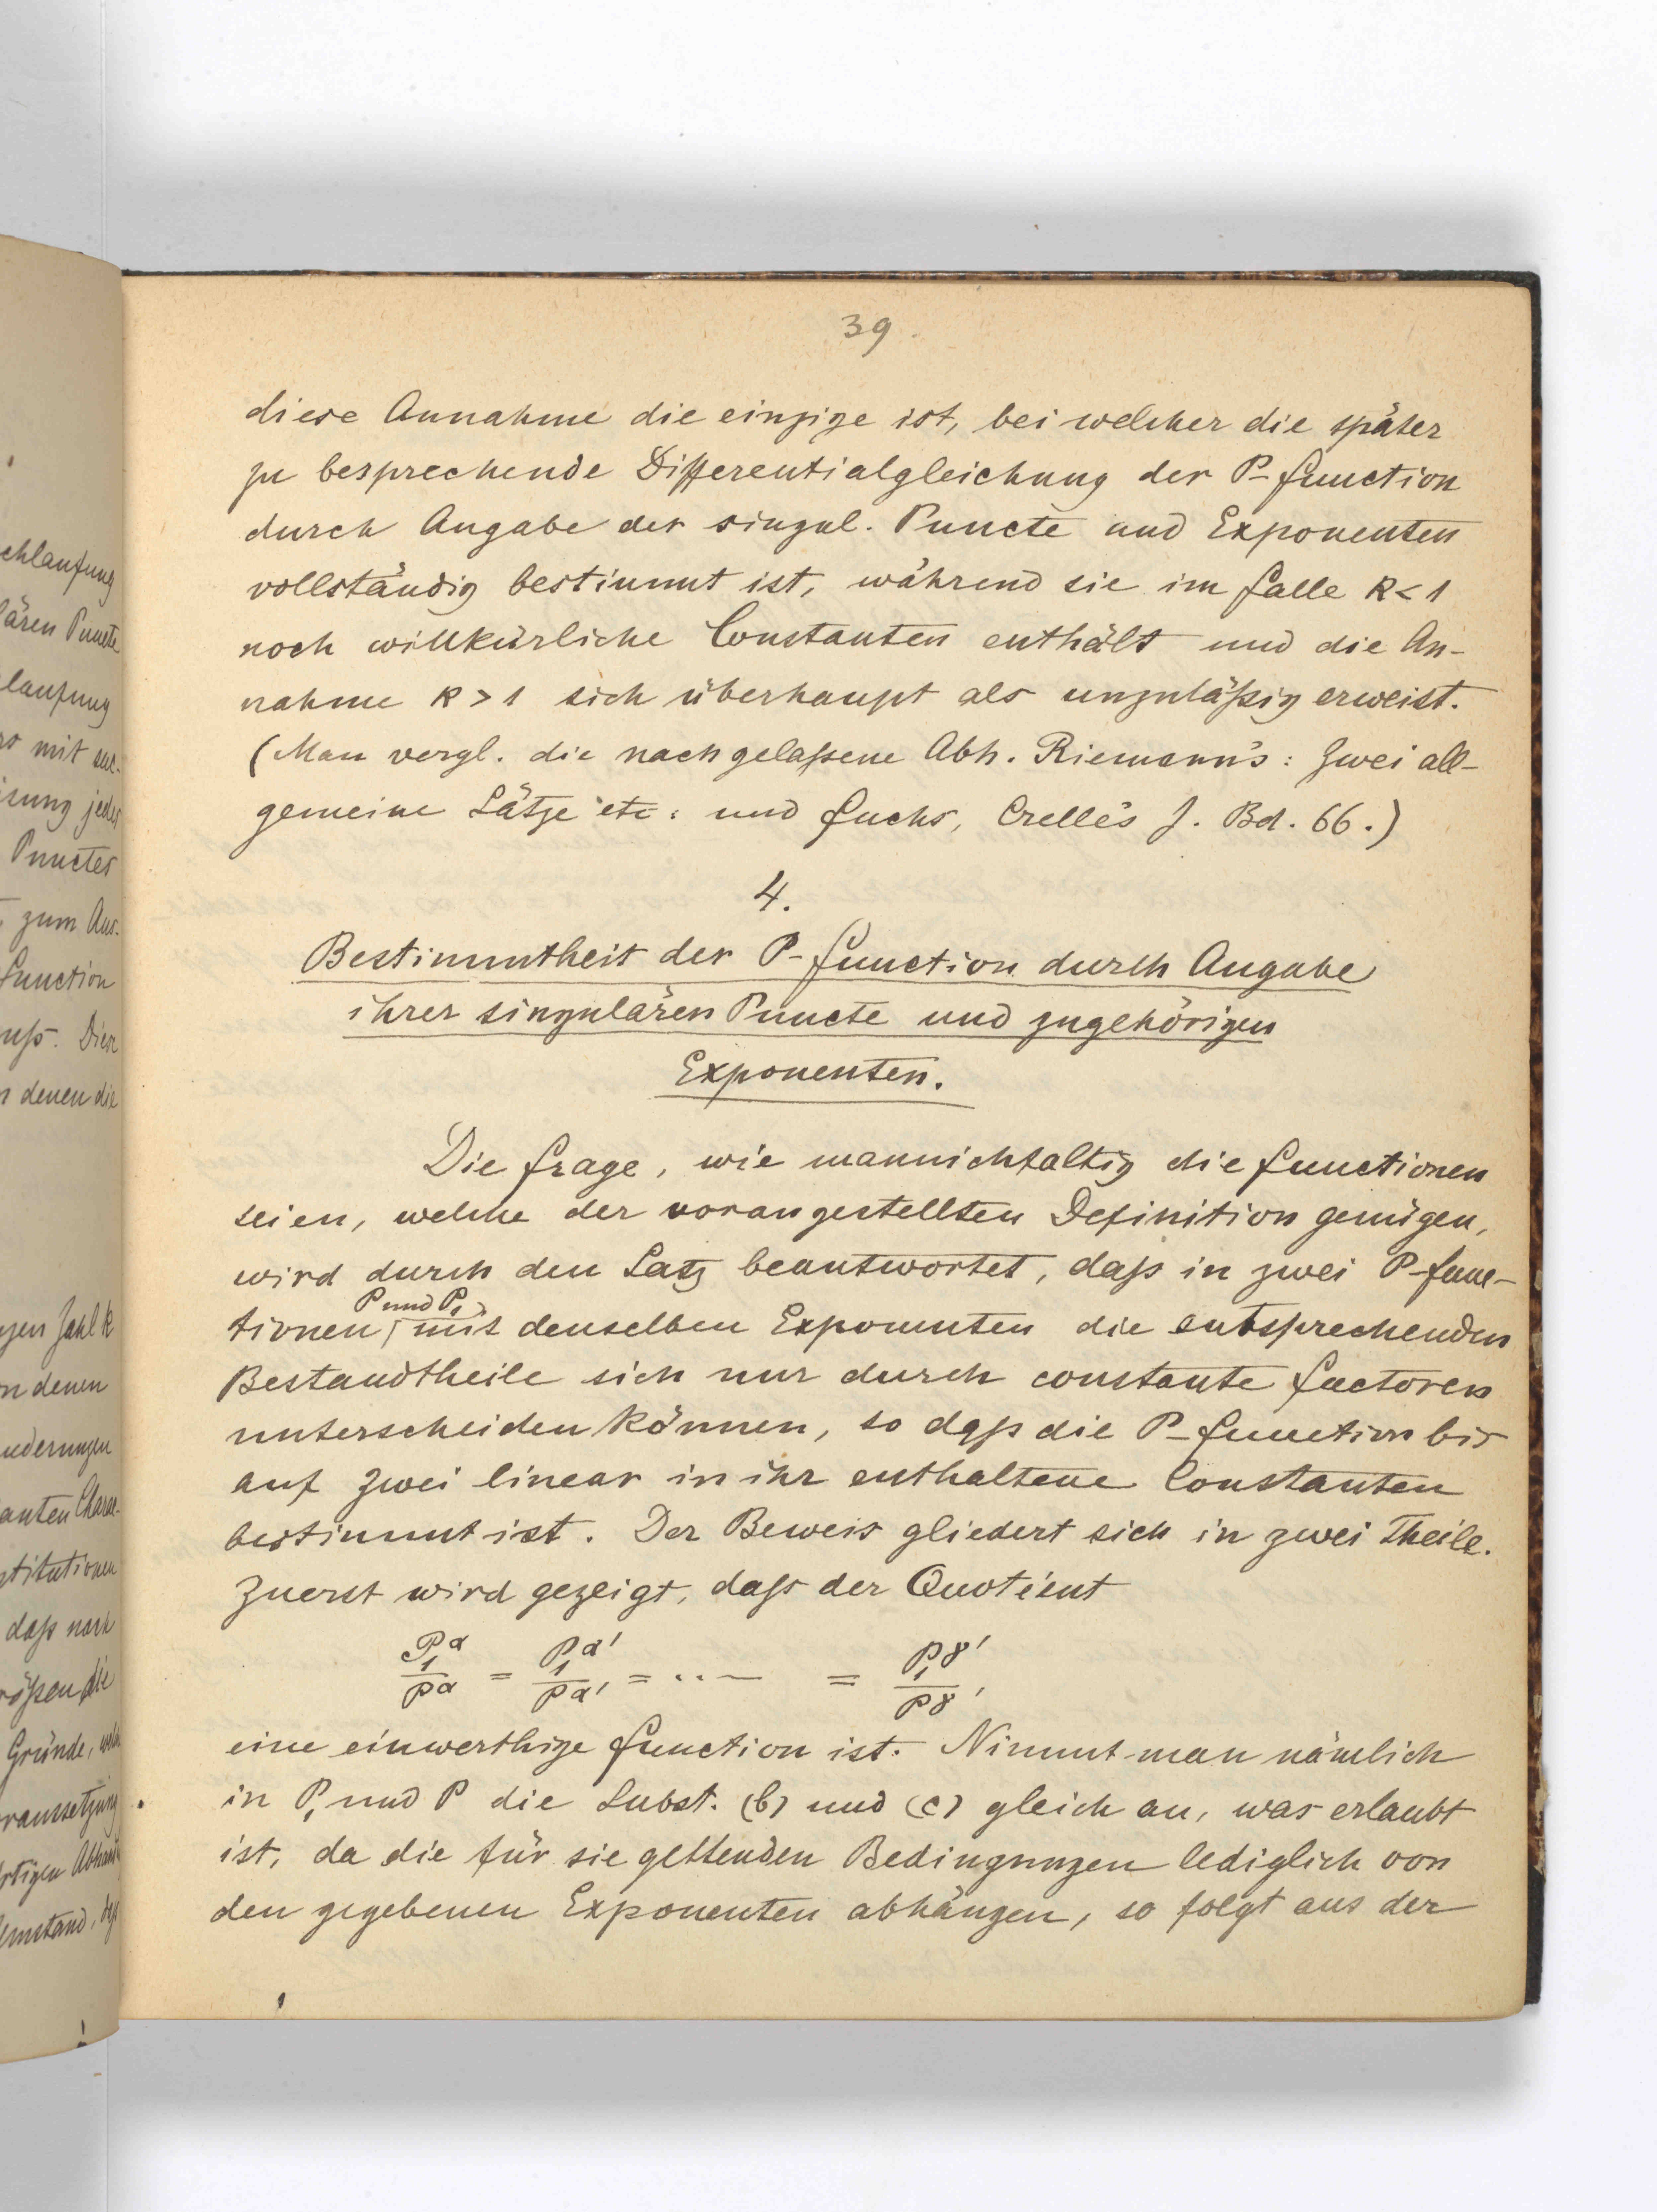 39.
diese Annahme die einzige ist, bei welcher die später
zu besprechende Differentialgleichung der P-function
durch Angabe der singul. Puncte und Exponenten
vollständig bestimmt ist, während sie im Falle k < 1
noch willkürliche Constanten enthält und die An-
nahme k > 1 sich überhaupt als unzuläßig erweist.
(Man vergl. die nachgelaßene Abh. Riemann's: Zwei all-
gemeine Sätze etc: und Fuchs, Crelle's J. Bd. 66.)
4.
Bestimmtheit der P-function durch Angabe
ihrer singulären Puncte und zugehörigen
Exponenten.
Die Frage, wie mannichfaltig die Functionen
seien, welche der vorangestellten Definition genügen,
wird durch den Satz beantwortet, daß in zwei P-func-
P und P₁
tionen, mit denselben Exponenten die entsprechenden
Bestandtheile sich nur durch constante Factoren
unterscheiden können, so daß die P-function bis
auf zwei linear in ihr enthaltene Constanten
bestimmt ist. Der Beweis gliedert sich in zwei Theile.
Zuerst wird gezeigt, daß der Quotient
P₁^α/P^α = P₁^α'/P^α' = ... = P₁^γ'/P^γ',
eine einwerthige Function ist. Nimmt man nämlich
in P₁ und P die Subst. (b) und (c) gleich an, was erlaubt
ist, da die für sie geltenden Bedingungen lediglich von
den gegebenen Exponenten abhängen, so folgt aus der
chlaufung
lären Puncte
laufung
mit suc-
isung jedes
Punctes
zum Aus-
Function
uß. Diese
denen die
gen Zahl k
n denen
nderungen
anten Charac-
stitutionen
daß nach
rößen die
Gründe,
raussetzung
rtigen